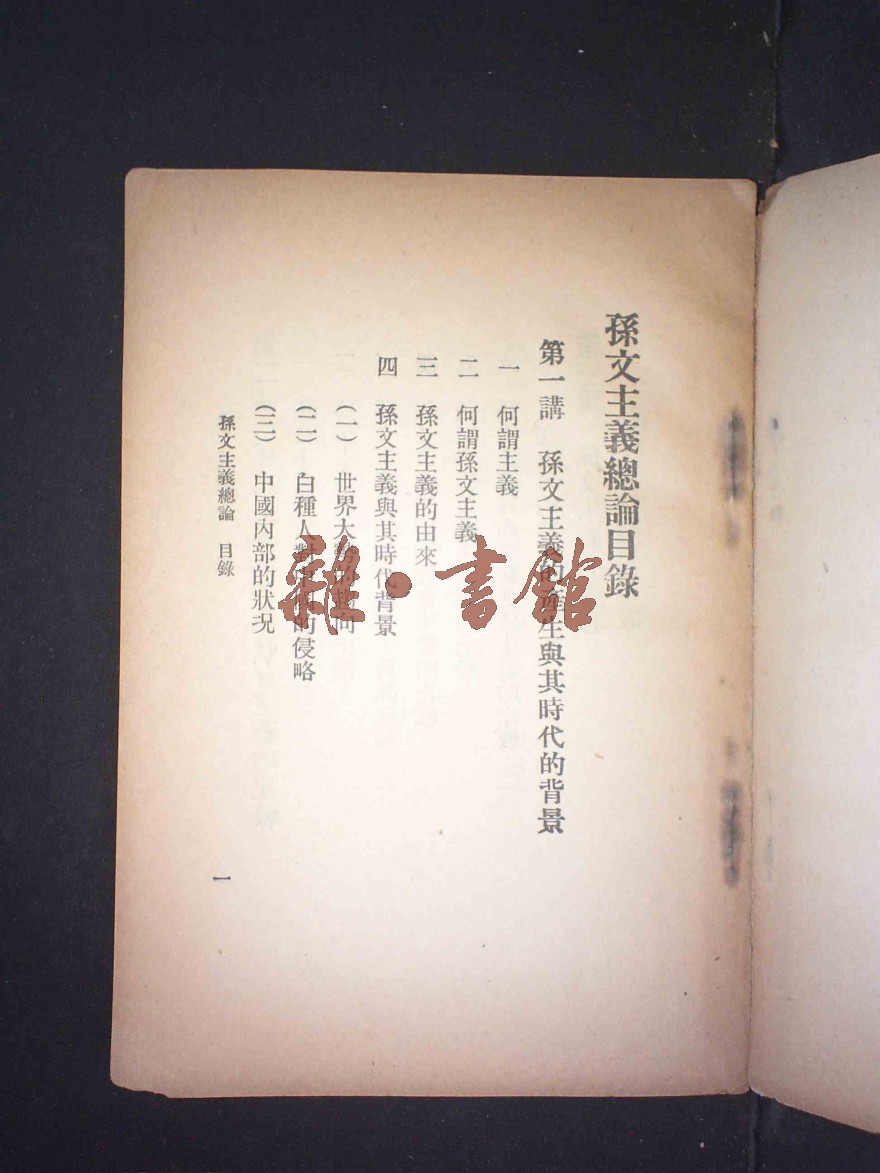 孫文主義總論目錄
第一講 孫文主義的產生與其時代的背景
一 何謂主義
二 何謂孫文主義
三 孫文主義的由來
四 孫文主義與其時代背景
(一) 世界大勢的趨向
(二) 白種人對中國的侵略
(三) 中國內部的狀況
孫文主義總論 目錄
一
雜·書館